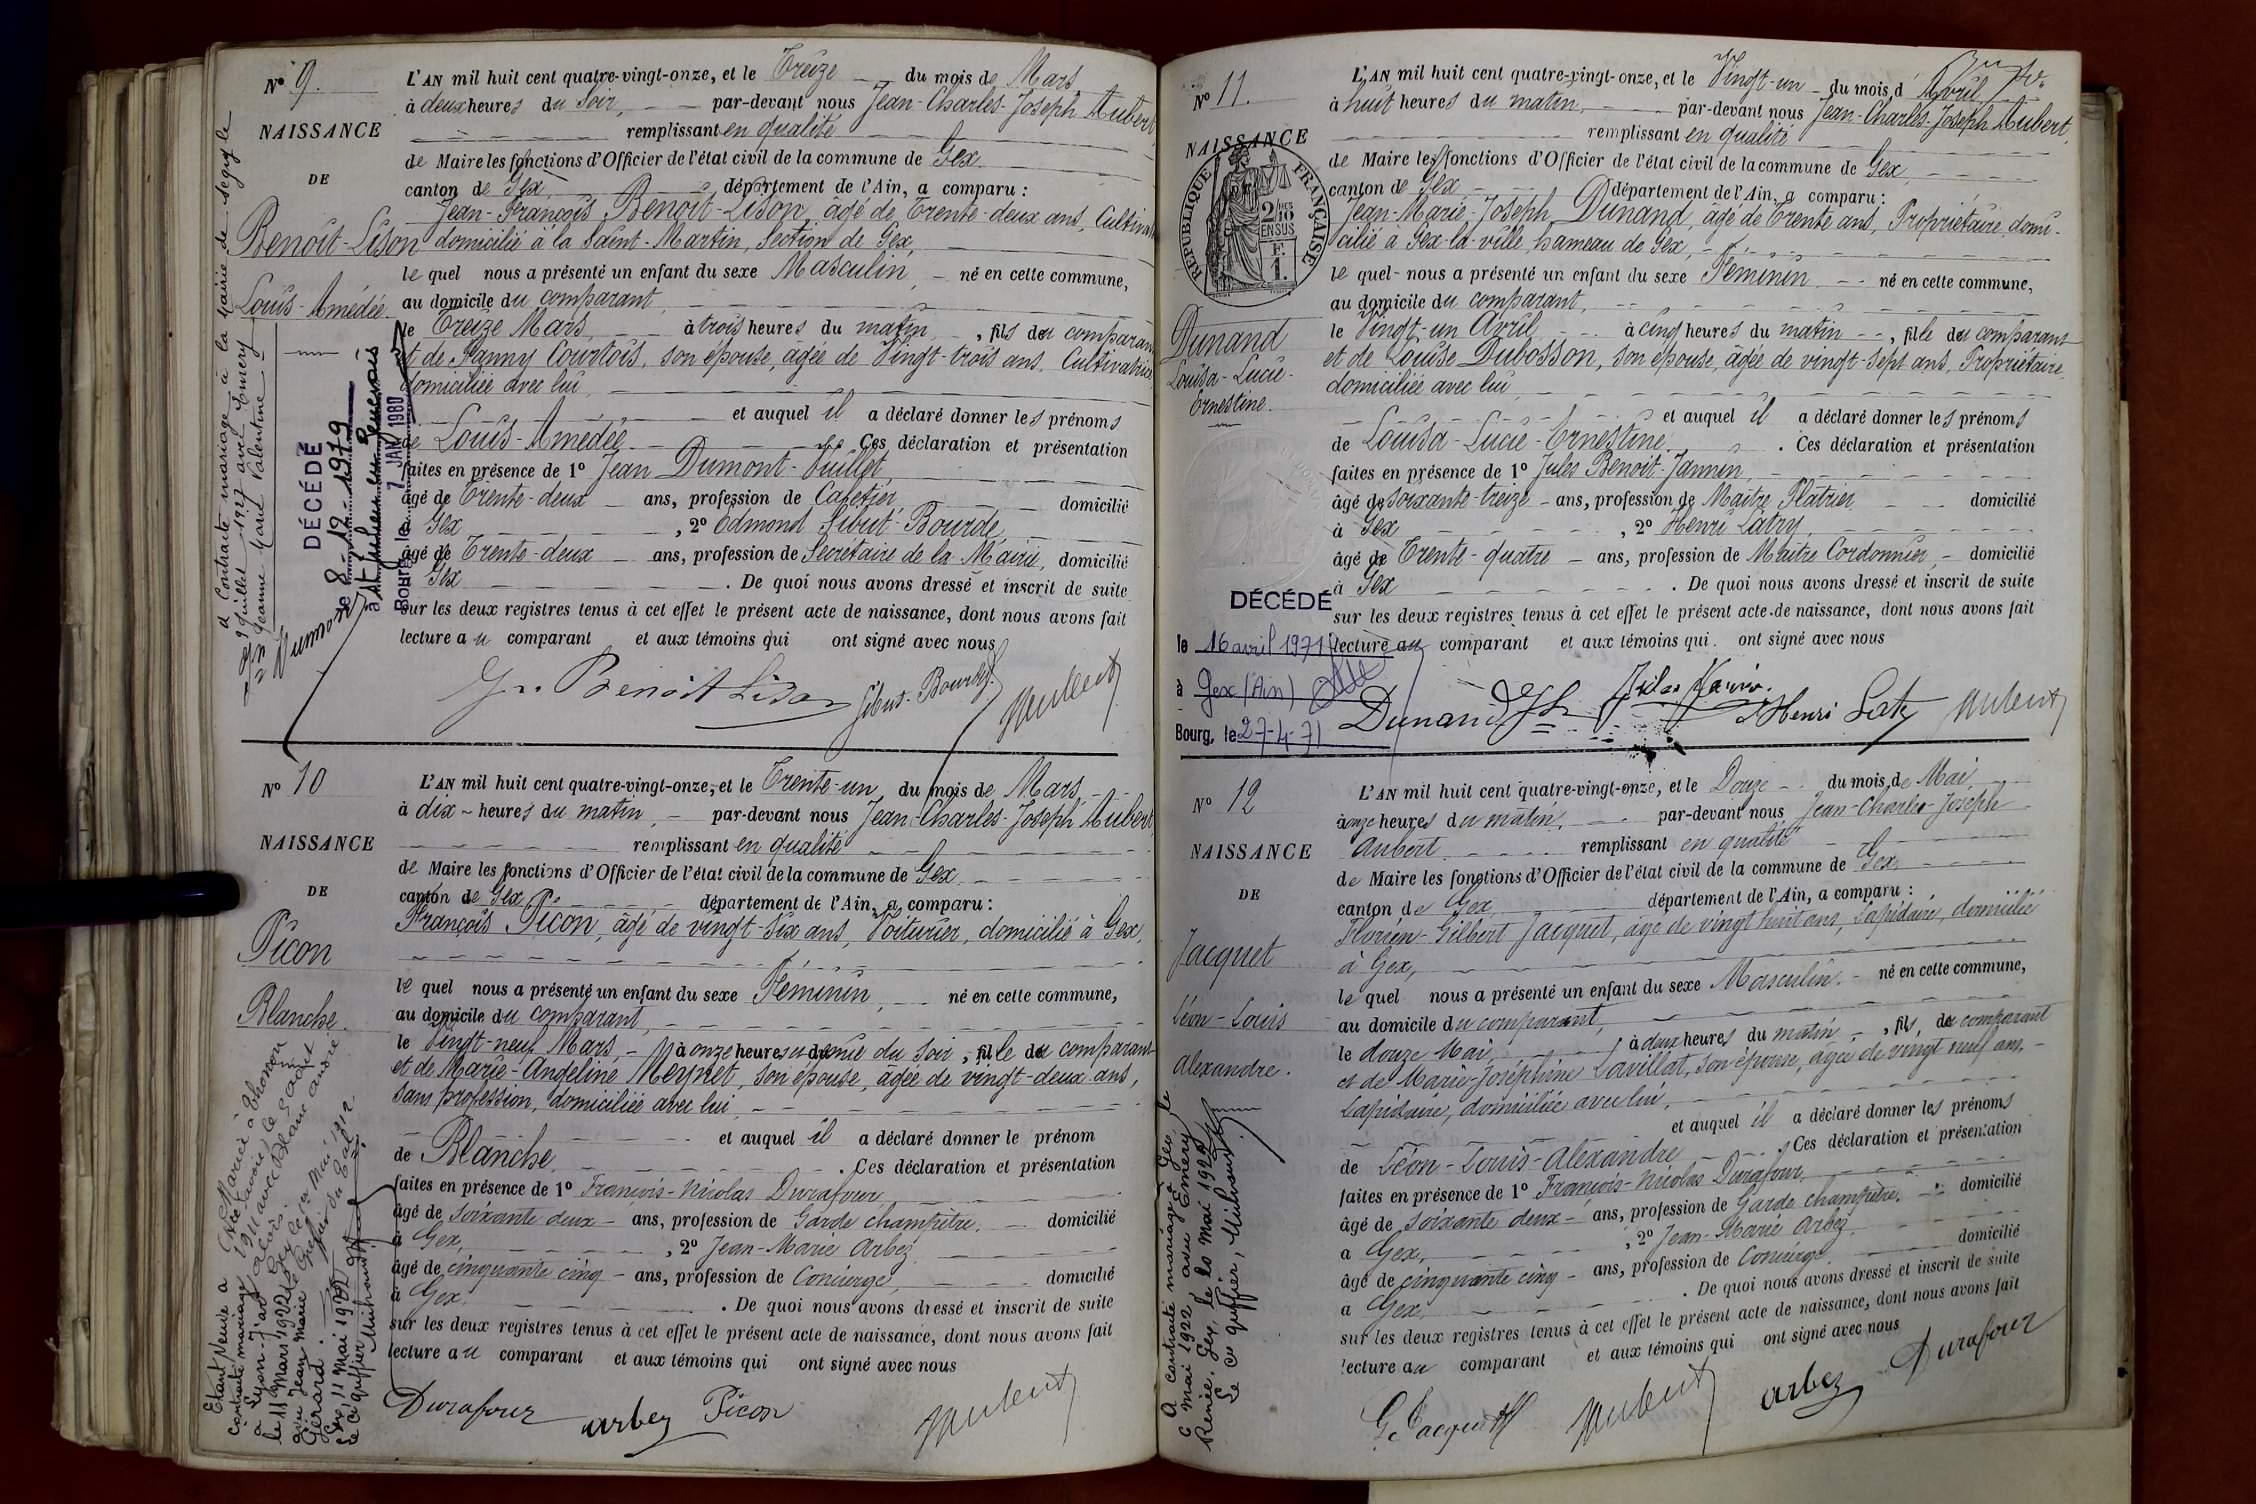 N° 9.
NAISSANCE
DE
Benoît-Lison
Louis-Amédée
L'AN mil huit cent quatre-vingt-onze, et le Treize du mois de Mars
à deux heures du soir, par-devant nous Jean-Charles-Joseph Aubert
remplissant en qualité
de Maire les fonctions d'Officier de l'état civil de la commune de Gex
canton de Gex département de l'Ain, a comparu :
Jean-François Benoît-Lison, âgé de Trente-deux ans, Cultivat
domicilié à la Saint-Martin, Section de Gex,
le quel nous a présenté un enfant du sexe Masculin, né en cette commune,
au domicile du comparant,
le Treize Mars, à trois heures du matin, fils du comparant
et de Fanny Courtois, son épouse, âgée de Vingt-trois ans, Cultivatrice
domiciliée avec lui,
et auquel il a déclaré donner les prénoms
de Louis-Amédée. Ces déclaration et présentation
faites en présence de 1° Jean Dumont-Vuillet
âgé de Trente-deux ans, profession de Cafetier domicilié
à Gex, 2° Edmond Sibut-Bourde,
âgé de Trente-deux ans, profession de Secrétaire de la Mairie, domicilié
à Gex. De quoi nous avons dressé et inscrit de suite
sur les deux registres tenus à cet effet le présent acte de naissance, dont nous avons fait
lecture au comparant et aux témoins qui ont signé avec nous
Benoit Lison Sibut-Bourde Aubert
Dumont
a Contracté mariage à la Mairie de Segny le
9 Juillet 1927 avec Emery
Jeanne Marie Valentine
DÉCÉDÉ
le 8-12-1979
à St Julien en Genevois
Bourg, le 7 JAN 1980
N° 10
NAISSANCE
DE
Picon
Blanche.
L'AN mil huit cent quatre-vingt-onze, et le Trente-un du mois de Mars
à dix heures du matin, par-devant nous Jean-Charles-Joseph Aubert
remplissant en qualité
de Maire les fonctions d'Officier de l'état civil de la commune de Gex
canton de Gex département de l'Ain, a comparu :
François Picon, âgé de vingt-six ans, Voiturier, domicilié à Gex,
le quel nous a présenté un enfant du sexe Féminin, né en cette commune,
au domicile du comparant,
le Vingt-neuf Mars, à onze heures et demie du soir, fille du comparant
et de Marie-Angéline Meynet, son épouse, âgée de vingt-deux ans,
sans profession, domiciliée avec lui,
et auquel il a déclaré donner le prénom
de Blanche. Ces déclaration et présentation
faites en présence de 1° François-Nicolas Durafour,
âgé de soixante deux ans, profession de Garde champêtre, domicilié
à Gex, 2° Jean-Marie Arbez
âgé de cinquante cinq ans, profession de Concierge, domicilié
à Gex. De quoi nous avons dressé et inscrit de suite
sur les deux registres tenus à cet effet le présent acte de naissance, dont nous avons fait
lecture au comparant et aux témoins qui ont signé avec nous
Durafour arbez Picon Aubert
Mariée à Thonon
(Hte Savoie) le 5 août
1911 avec Blanc André
Gex le 12 Mai 1912
Etant Veuve a
contracté mariage
à Lyon
le 11 Mars 1922
avec Jean Marie
Gérard.
Gex, 11 Mai 1922
Le Greffier
N° 11.
NAISSANCE
RÉPUBLIQUE FRANÇAISE
2/10 EN SUS
1 F.
Dunand
Louisa-Lucie-
Ernestine.
L'AN mil huit cent quatre-vingt-onze, et le Vingt-un du mois d'Avril
à huit heures du matin, par-devant nous Jean-Charles-Joseph Aubert
remplissant en qualité
de Maire les fonctions d'Officier de l'état civil de la commune de Gex,
canton de Gex département de l'Ain, a comparu :
Jean-Marie-Joseph Dunand, âgé de Trente ans, Propriétaire, domi-
cilié à Gex-la-ville, hameau de Gex,
le quel nous a présenté un enfant du sexe Féminin, né en cette commune,
au domicile du comparant,
le Vingt-un Avril, à cinq heures du matin, fille du comparant
et de Louise Dubosson, son épouse, âgée de vingt-sept ans, Propriétaire,
domiciliée avec lui,
et auquel il a déclaré donner les prénoms
de Louisa-Lucie-Ernestine. Ces déclaration et présentation
faites en présence de 1° Jules Benoit-Jannin,
âgé de soixante-treize ans, profession de Maître Plâtrier domicilié
à Gex, 2° Henri Latry,
âgé de Trente-quatre ans, profession de Maître Cordonnier, domicilié
à Gex. De quoi nous avons dressé et inscrit de suite
sur les deux registres tenus à cet effet le présent acte de naissance, dont nous avons fait
lecture au comparant et aux témoins qui ont signé avec nous
Dunand Henri Latry Aubert
DÉCÉDÉ
le 16 avril 1971
à Gex (Ain)
Bourg, le 27-4-71
N° 12
NAISSANCE
DE
Jacquet
Léon-Louis
Alexandre.
L'AN mil huit cent quatre-vingt-onze, et le Douze du mois de Mai,
à onze heures du matin, par-devant nous Jean-Charles-Joseph
Aubert remplissant en qualité
de Maire les fonctions d'Officier de l'état civil de la commune de Gex
canton de Gex département de l'Ain, a comparu :
Florien-Gilbert Jacquet, âgé de vingt huit ans, Lapidaire, domicilié
à Gex,
le quel nous a présenté un enfant du sexe Masculin, né en cette commune,
au domicile du comparant,
le douze Mai, à deux heures du matin, fils, du comparant
et de Marie-Joséphine Lavillat, son épouse, âgée de vingt neuf ans,
Lapidaire, domiciliée avec lui,
et auquel il a déclaré donner les prénoms
de Léon-Louis-Alexandre. Ces déclaration et présentation
faites en présence de 1° François-Nicolas Durafour,
âgé de soixante deux ans, profession de Garde champêtre, domicilié
à Gex, 2° Jean-Marie Arbez
âgé de cinquante cinq ans, profession de Concierge domicilié
à Gex. De quoi nous avons dressé et inscrit de suite
sur les deux registres tenus à cet effet le présent acte de naissance, dont nous avons fait
lecture au comparant et aux témoins qui ont signé avec nous
G Jacquet Aubert arbez Durafour
A contracté mariage à Gex, le
6 Mai 1922, avec Emery
Renée. Gex, le 10 Mai 1922
Le Greffier,